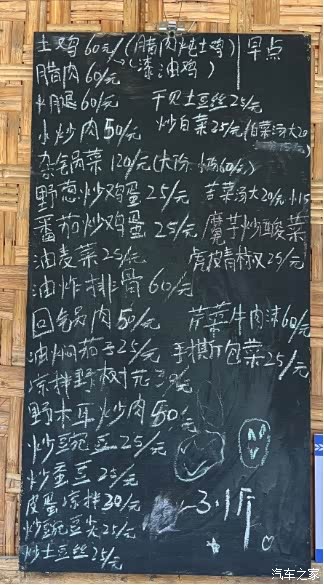 土鸡60元/(腊肉炖土鸡) 早点
腊肉60/元 (漆油鸡)
火腿60/元 干贝土豆丝25/元
小炒肉50/元 炒白菜25/元(白菜汤大20
杂锅菜120/元(大份 小份60/元)
野葱炒鸡蛋25/元 苦菜汤大20/元 小15
番茄炒鸡蛋25/元 魔芋炒酸菜
油麦菜25/元 虎皮青椒25/元
油炸排骨60/元
回锅肉50/元 苦菜牛肉沫60/元
油焖茄子25/元 手撕包菜25/元
凉拌野树花30元
野木耳炒肉50元
炒豌豆25/元
炒蚕豆25/元
皮蛋凉拌30/元 -3.1斤
炒豌豆尖25/元
炒土豆丝25/元
汽车之家